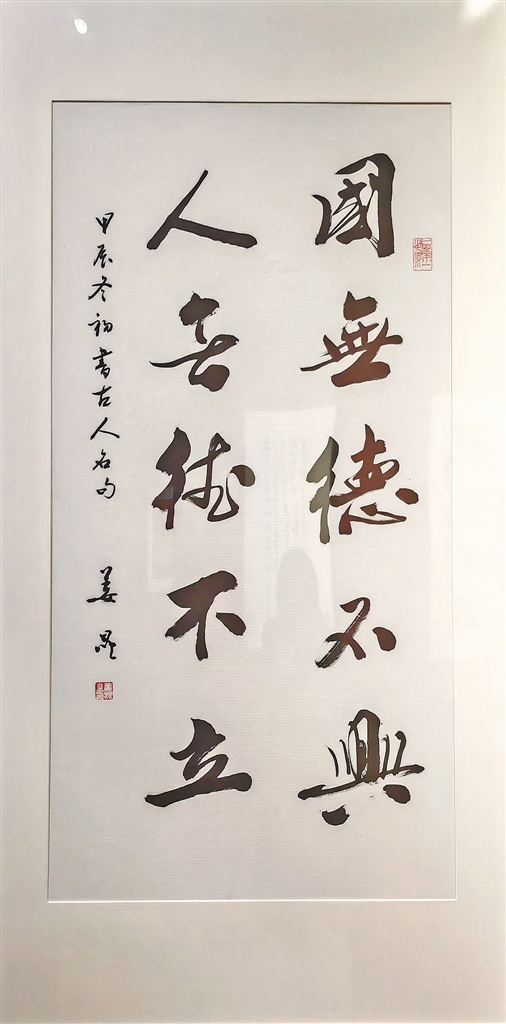 國無德不興
人無德不立
甲辰冬初書古人名句 姜昆